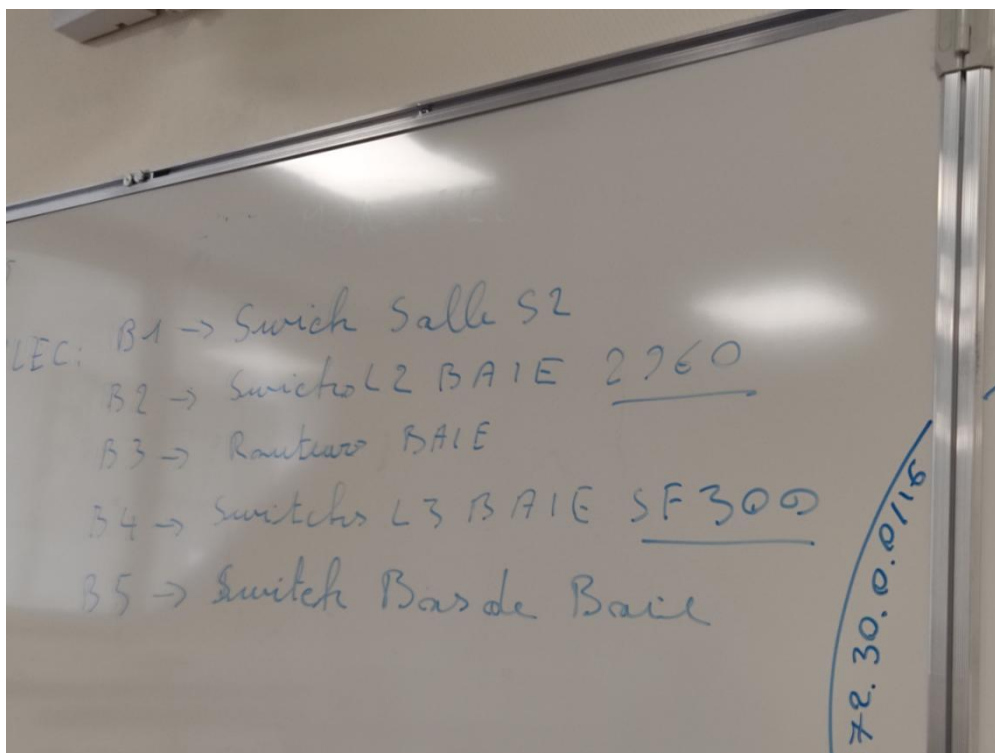 LEC: B1 → Swich Salle S2
B2 → Swichs L2 BAIE 2960
B3 → Routeurs BAIE
B4 → Switchs L3 BAIE SF300
B5 → Switch Bas de Baie
72.30.0.0/16